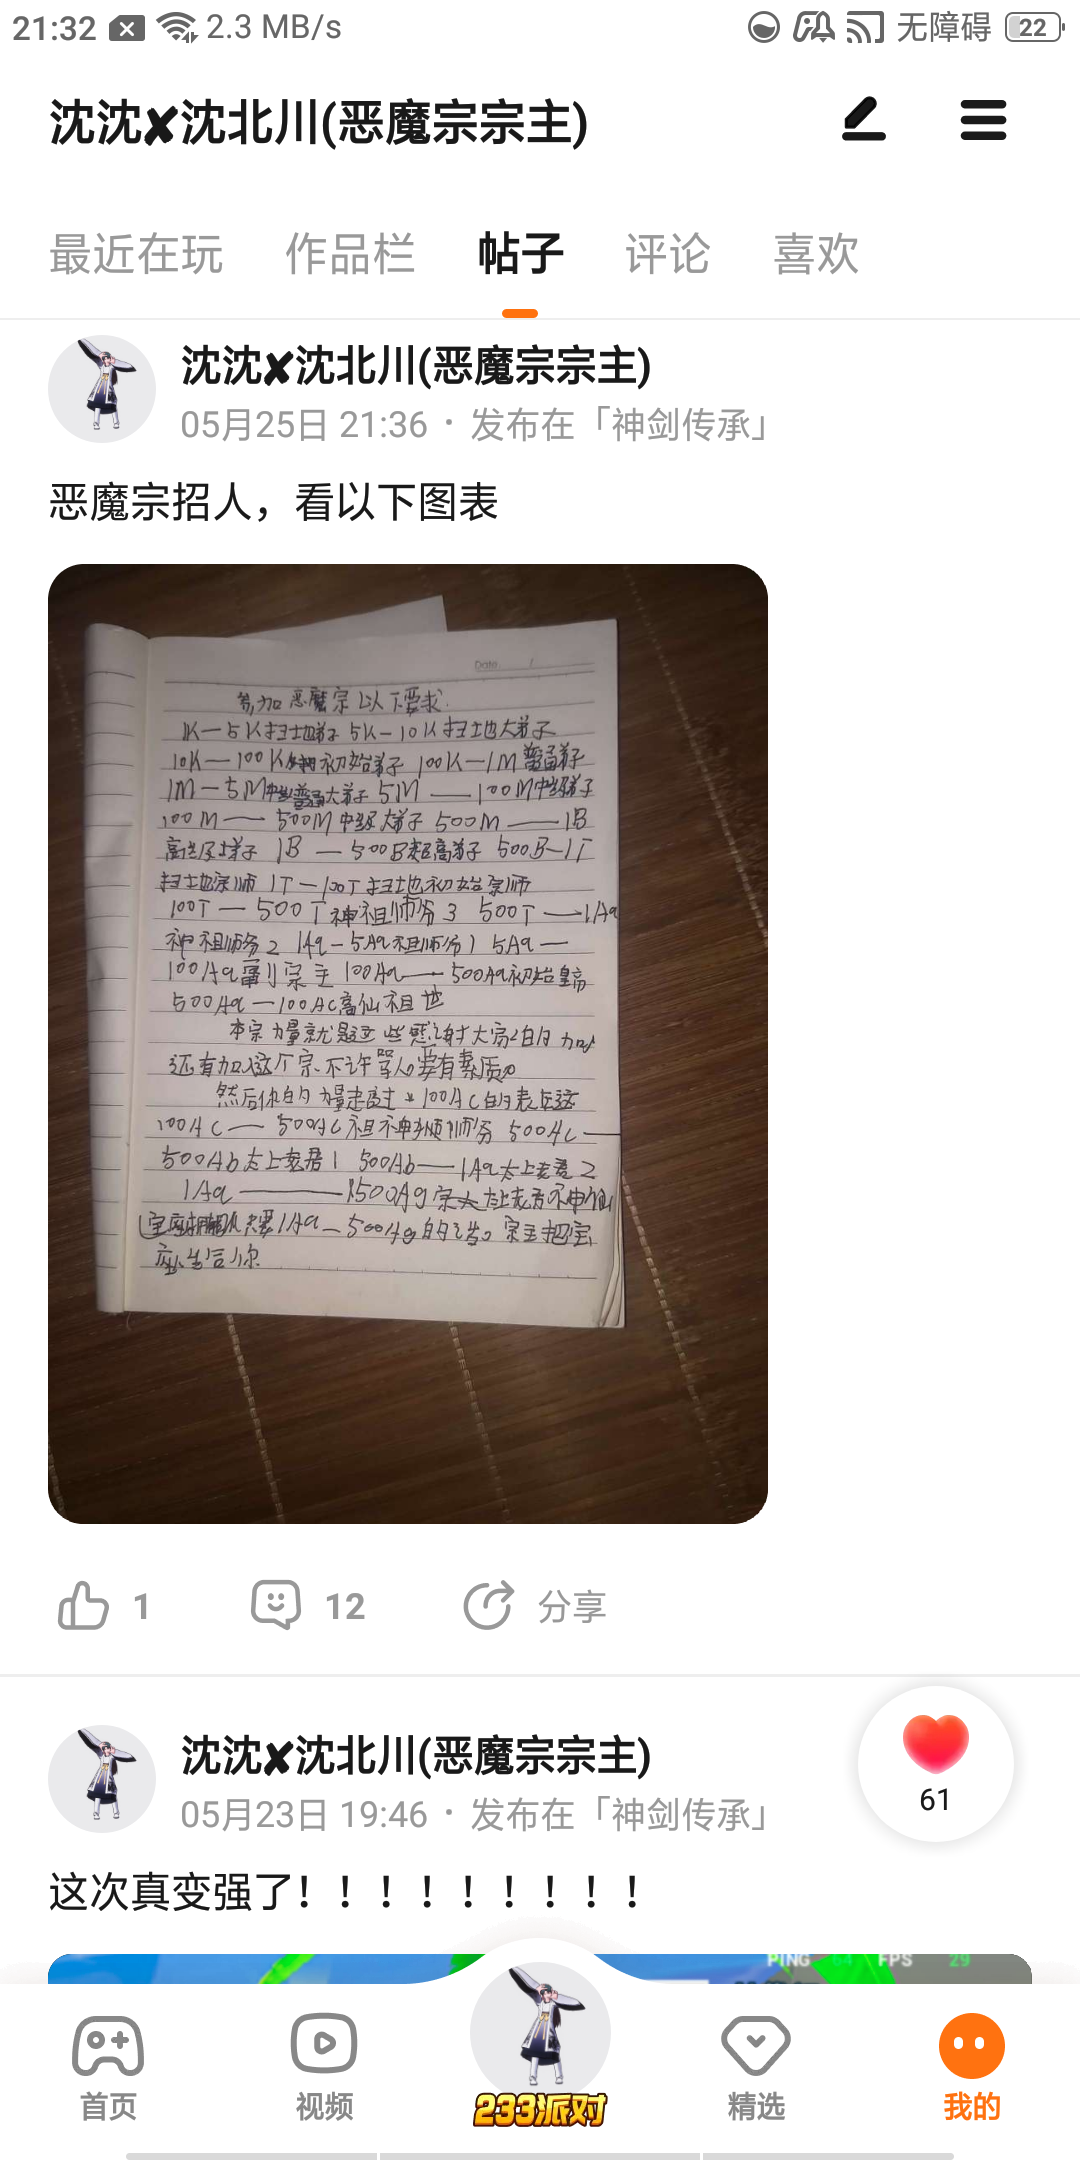 21:32 2.3 MB/s 无障碍 22
沈沈✘沈北川(恶魔宗宗主)
最近在玩 作品栏 帖子 评论 喜欢
沈沈✘沈北川(恶魔宗宗主)
05月25日 21:36 · 发布在「神剑传承」
恶魔宗招人，看以下图表
Date. /
参加恶魔宗以下要求
1K—5K扫地弟子 5K—10K扫地大弟子
10K—100K初始弟子 100K—1M普通弟子
1M—5M普通大弟子 5M——100M中级弟子
100M——500M中级大弟子 500M——1B
高级弟子 1B—500B超高弟子 500B—1T
扫地宗师 1T—100T扫地初始宗师
100T—500T神祖师爷3 500T——1Aa
神祖师爷2 1Aa—5Aa祖师爷1 5Aa—
100Aa副宗主 100Aa——500Aa初始皇帝
500Aa—100AC高仙祖地
本宗力量就是这些感谢大家的加
还有加入这个宗不许骂人要有素质
然后你的力量走过100AC的表在这
100AC——500AC祖神师爷 500AC——
500Ab太上老君1 500Ab——1Aa太上老君2
1Aa————1500Ag
只要1Aa—500Ag的话。宗主把宝
座让给你
1 12 分享
沈沈✘沈北川(恶魔宗宗主)
05月23日 19:46 · 发布在「神剑传承」
61
这次真变强了！！！！！！！！！
PING 64 FPS 29
233派对
首页 视频 精选 我的